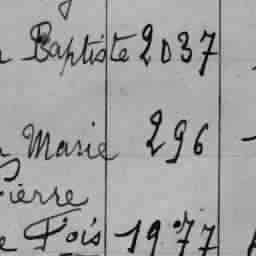 Baptiste 2037
Marie 296
Pierre
Fois 1977